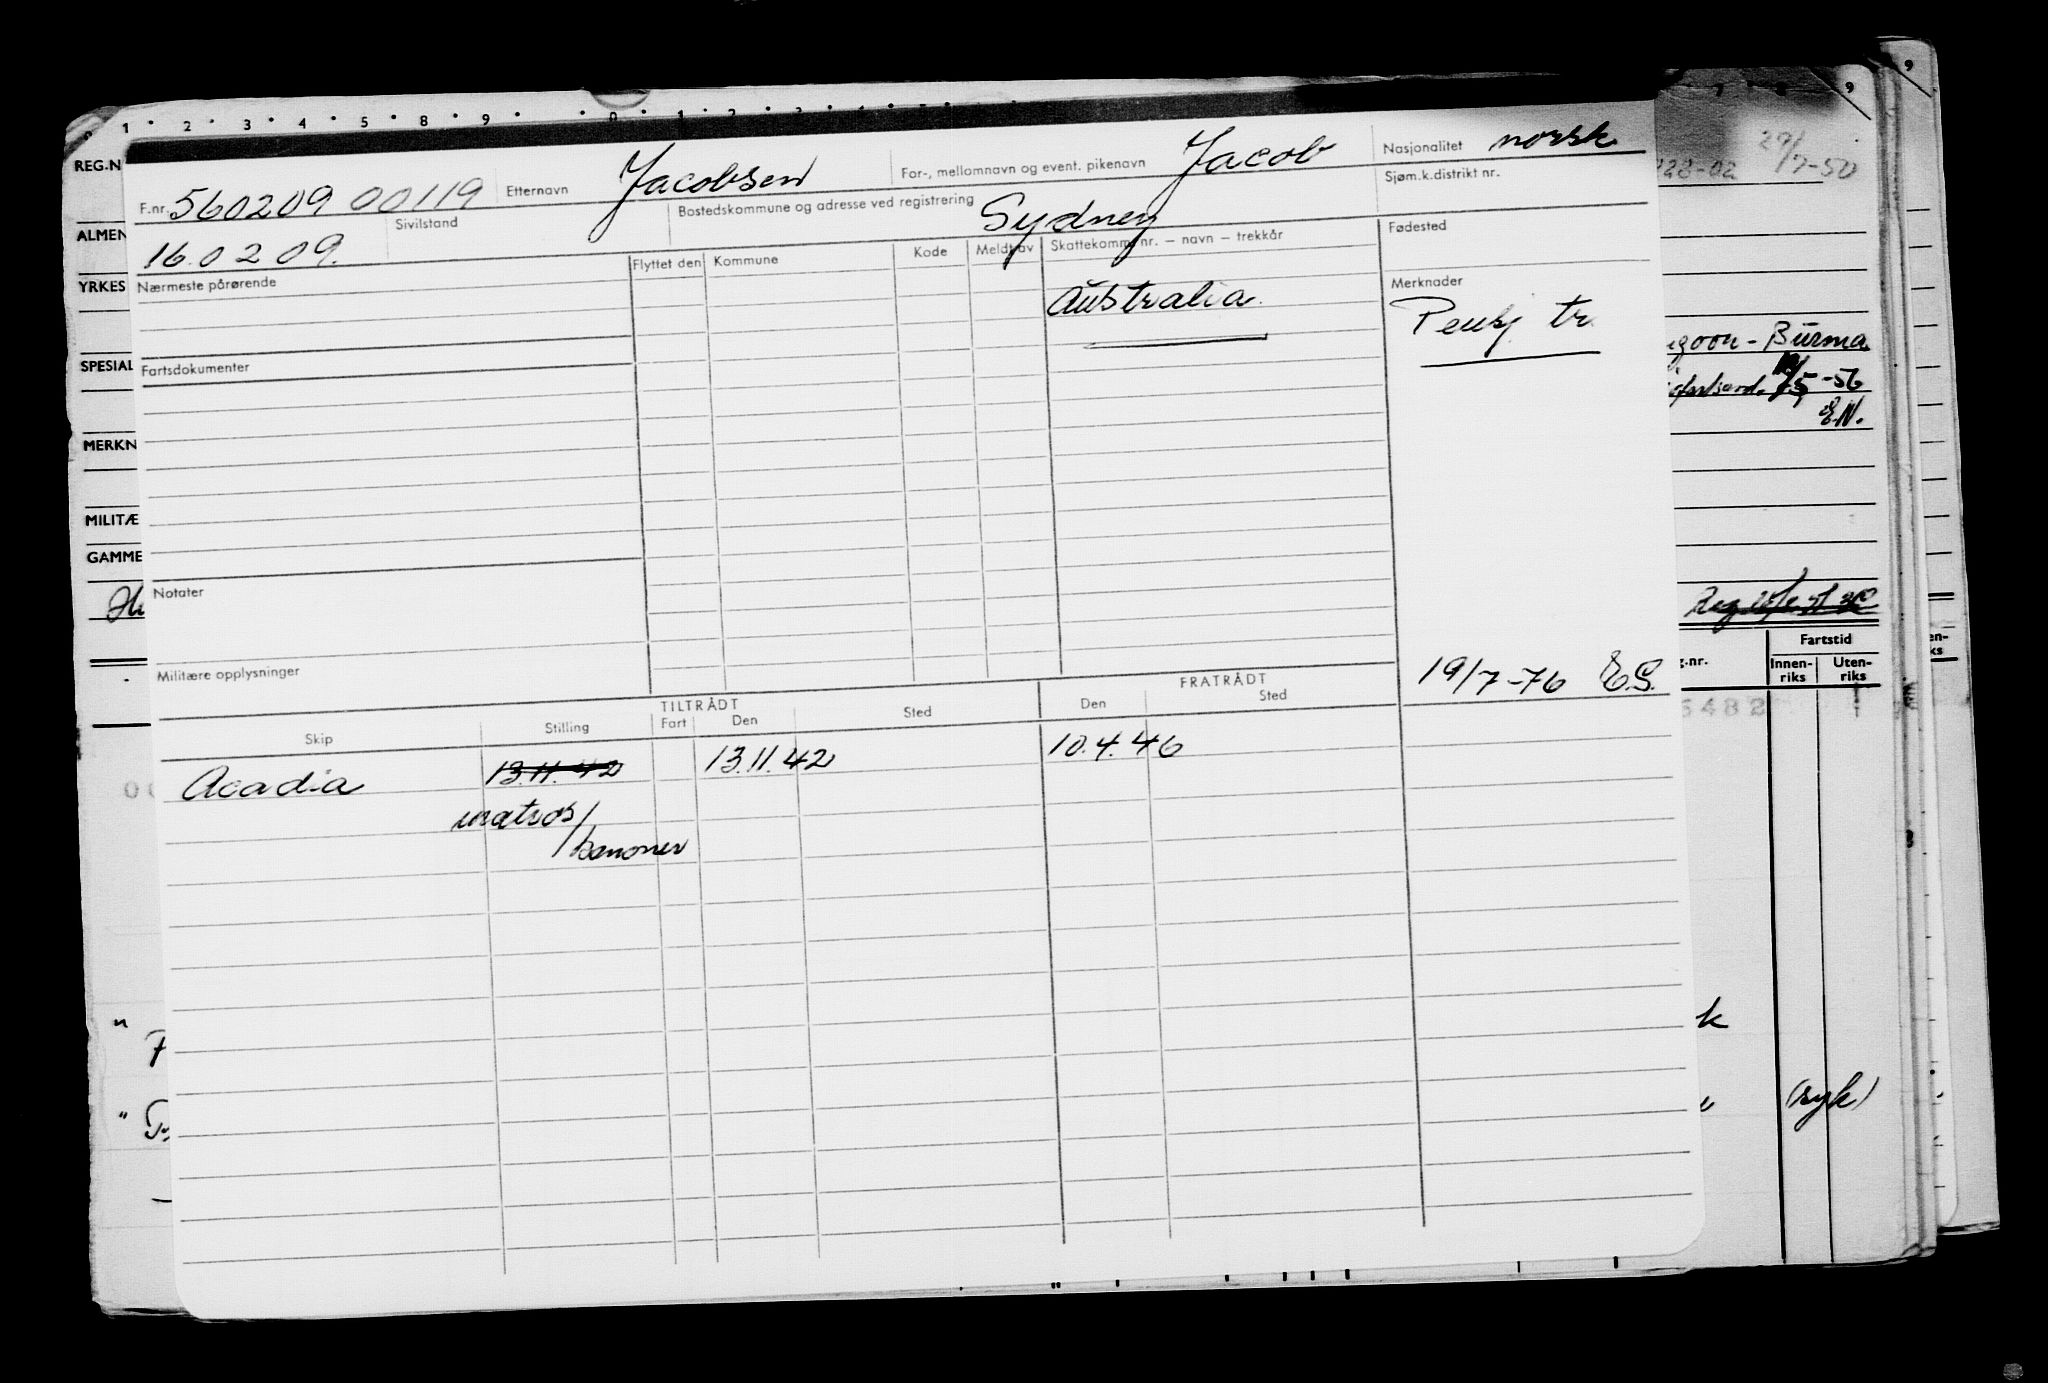 1 · 2 · 3 · 4 · 5 · 8 · 9 ·
9
9
REG.N
F.nr. 560209 00119 Etternavn Jacobsen For-, mellomnavn og event. pikenavn Jacob Nasjonalitet norsk
228-02 29/7-50
16.02 09. Sivilstand Bostedskommune og adresse ved registrering Sydney Sjøm.k.distrikt nr.
ALMEN
Nærmeste pårørende Flyttet den Kommune Kode Meldt av Skattekomm. nr. – navn – trekkår Fødested
YRKES
Australia. Merknader
Pensj tr.
SPESIAL
Fartsdokumenter
ngoon - Burma
/5-56
E.N.
MERKN
MILITÆ
GAMME
Notater
Militære opplysninger
19/7-76 E.S.
g.nr. Fartstid
Innen-riks Uten-riks
en-
ks
5482
TILTRÅDT FRATRÅDT
Skip Stilling Fart Den Sted Den Sted
Acadia 13.11.42 13.11.42 10.4.46
matros/
kanoner
k
(syk)